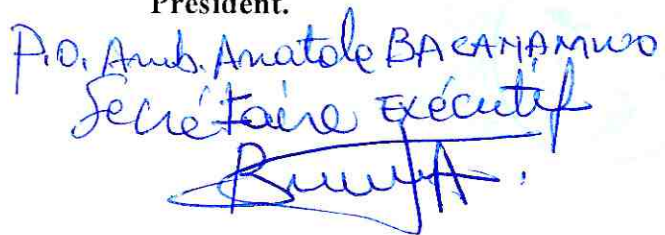 Président.
P.O. Amb. Anatole BACANAMWO
Secrétaire Exécutif